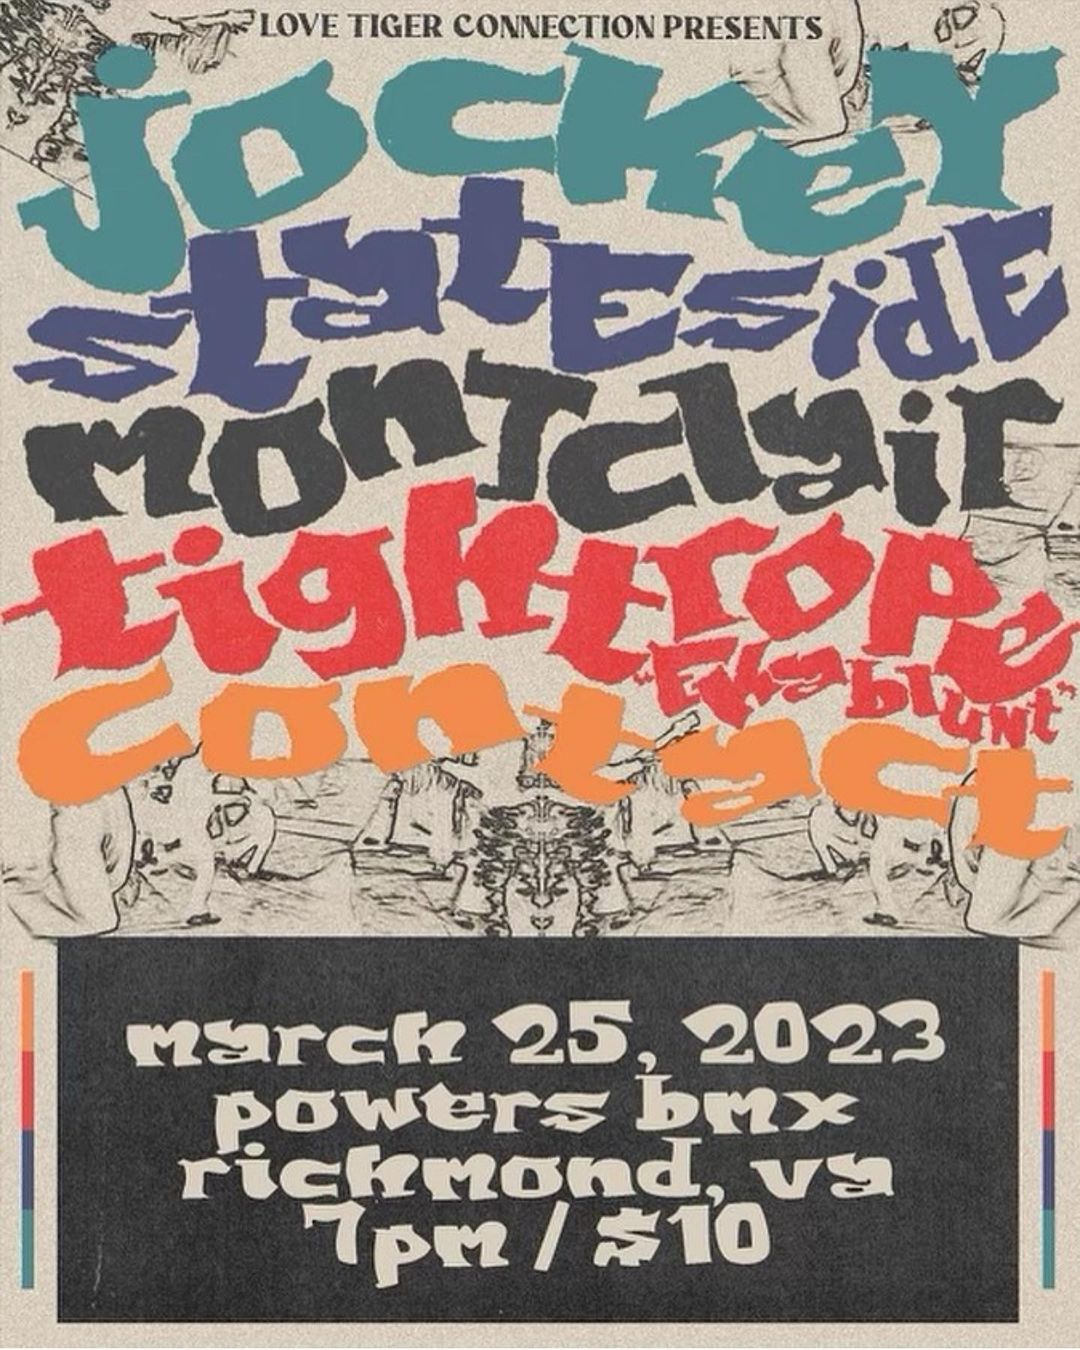 LOVE TIGER CONNECTION PRESENTS
jockeY
statEsidE
monTclair
tightrope
"Ewa blunt"
contact
march 25, 2023
powers bmx
richmond, va
7pm / $10